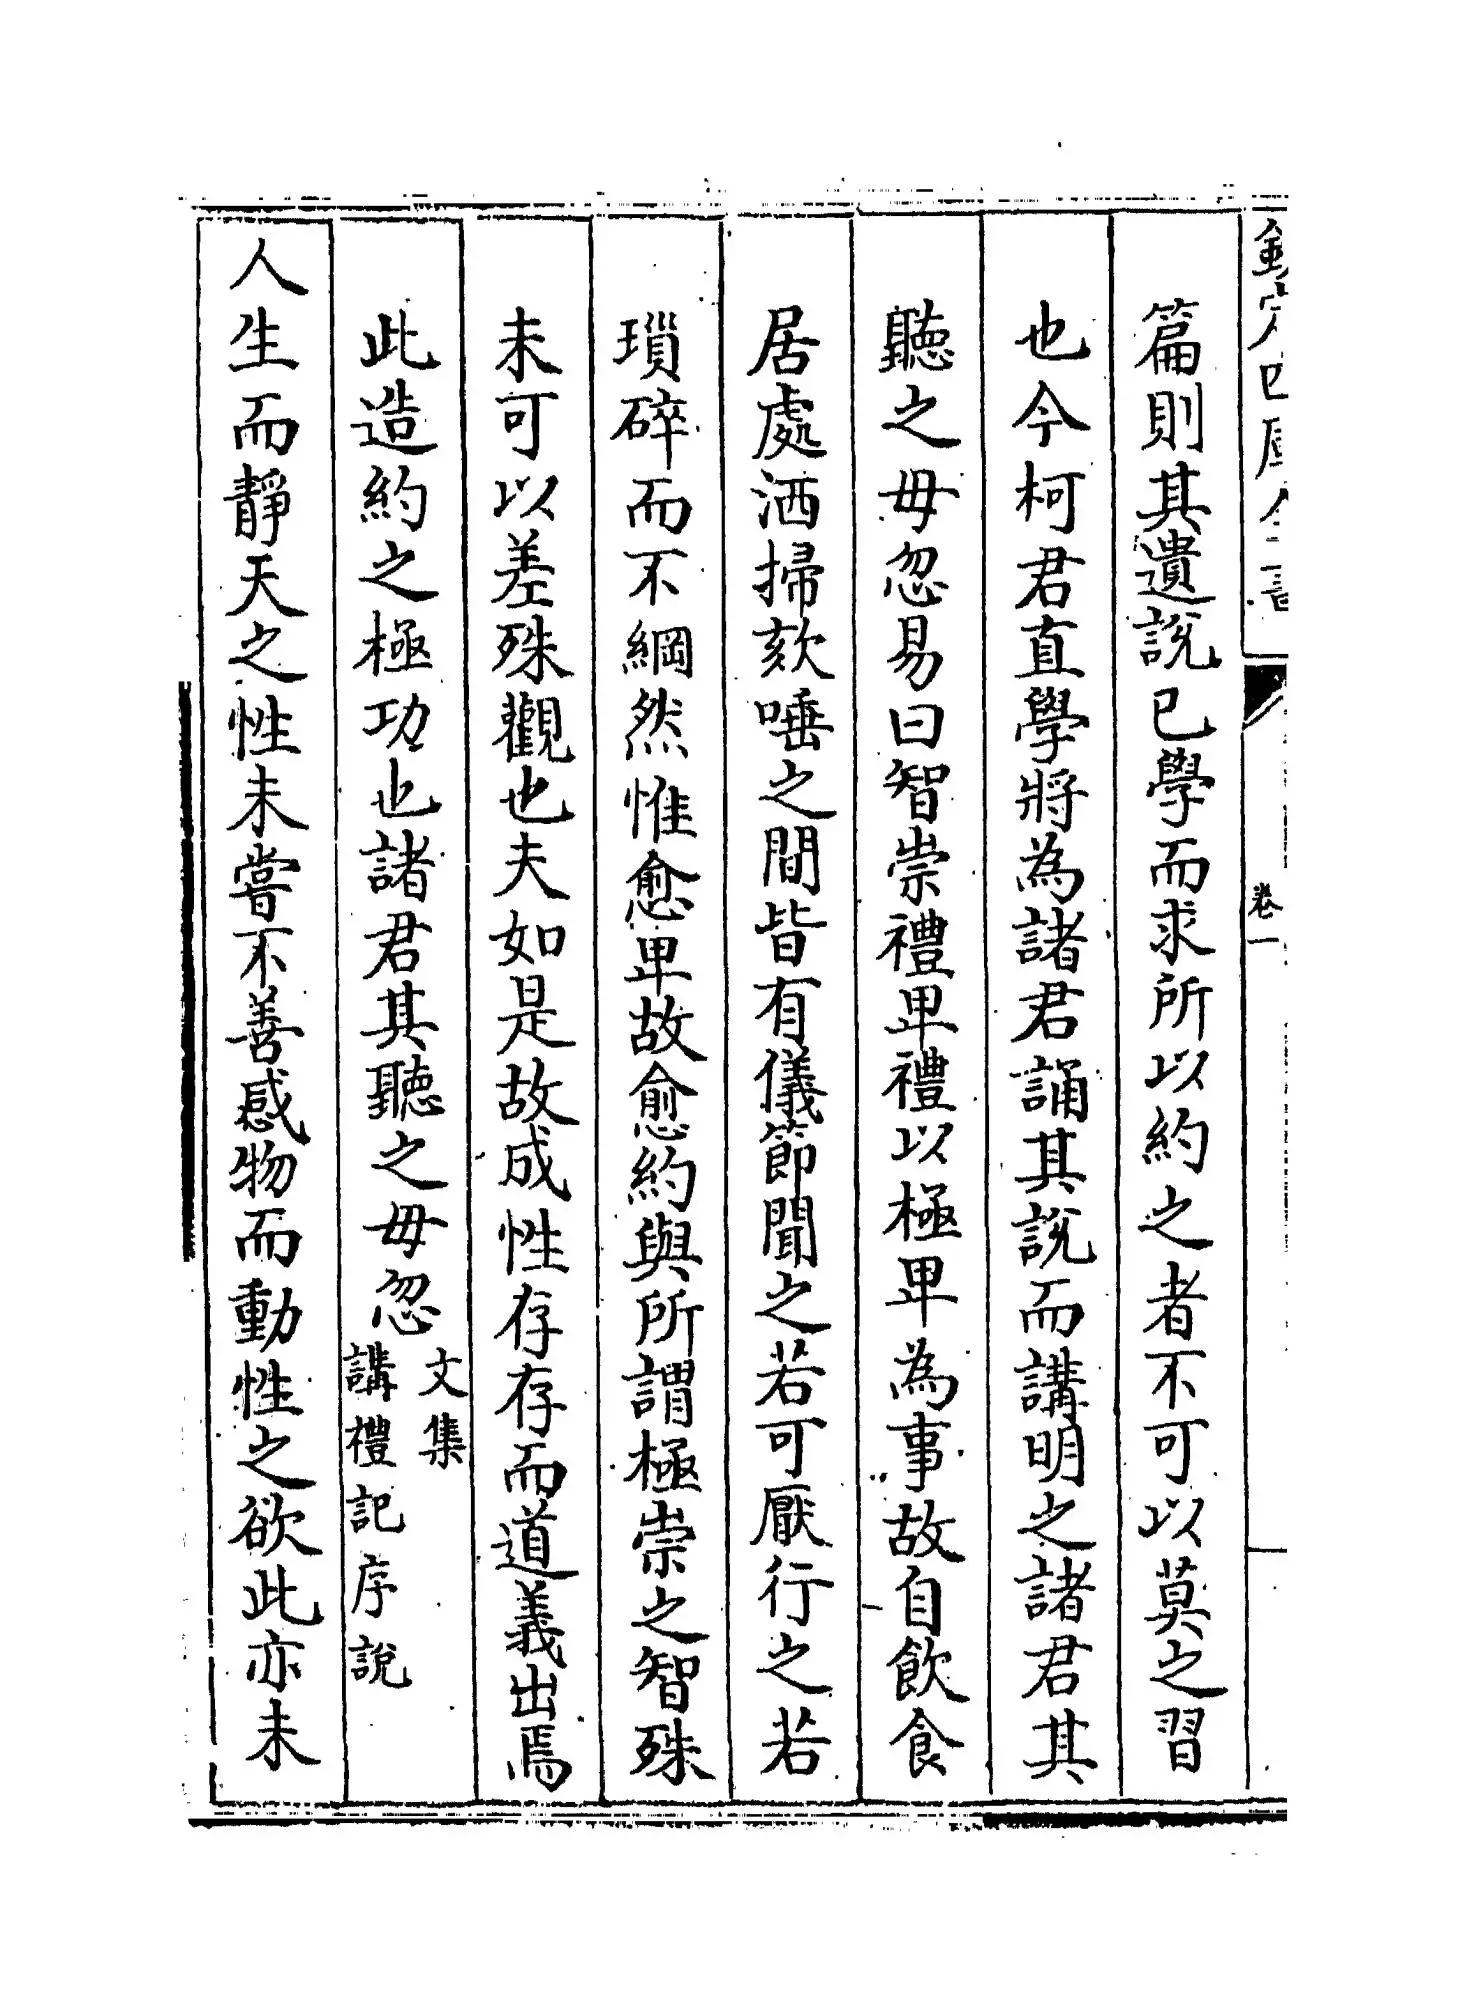 欽定四庫全書
卷一
篇則其遺說已學而求所以約之者不可以莫之習
也今柯君直學將為諸君誦其說而講明之諸君其
聽之毋忽易曰智崇禮卑禮以極卑為事故自飲食
居處洒掃欬唾之間皆有儀節聞之若可厭行之若
瑣碎而不綱然惟愈卑故愈約與所謂極崇之智殊
未可以差殊觀也夫如是故成性存存而道義出焉
此造約之極功也諸君其聽之毋忽
文集
講禮記序說
人生而靜天之性未嘗不善感物而動性之欲此亦未